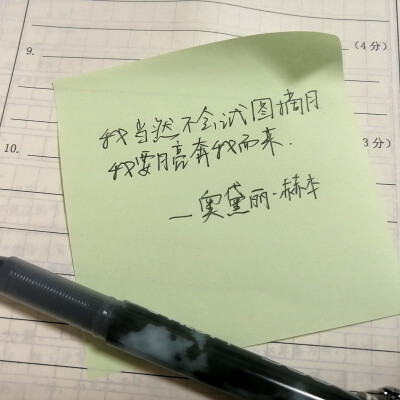 9.
(4分)
我当然不会试图摘月
我要月亮奔我而来.
—奥黛丽·赫本
10.
3分)